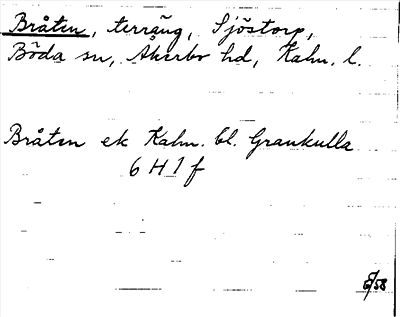 Bråten, terräng, Sjöstorp,
Böda sn, Åkerbo hd, Kalm. l.
Bråten ek Kalm. bl. Grankulla
6 H 1 f
6/58